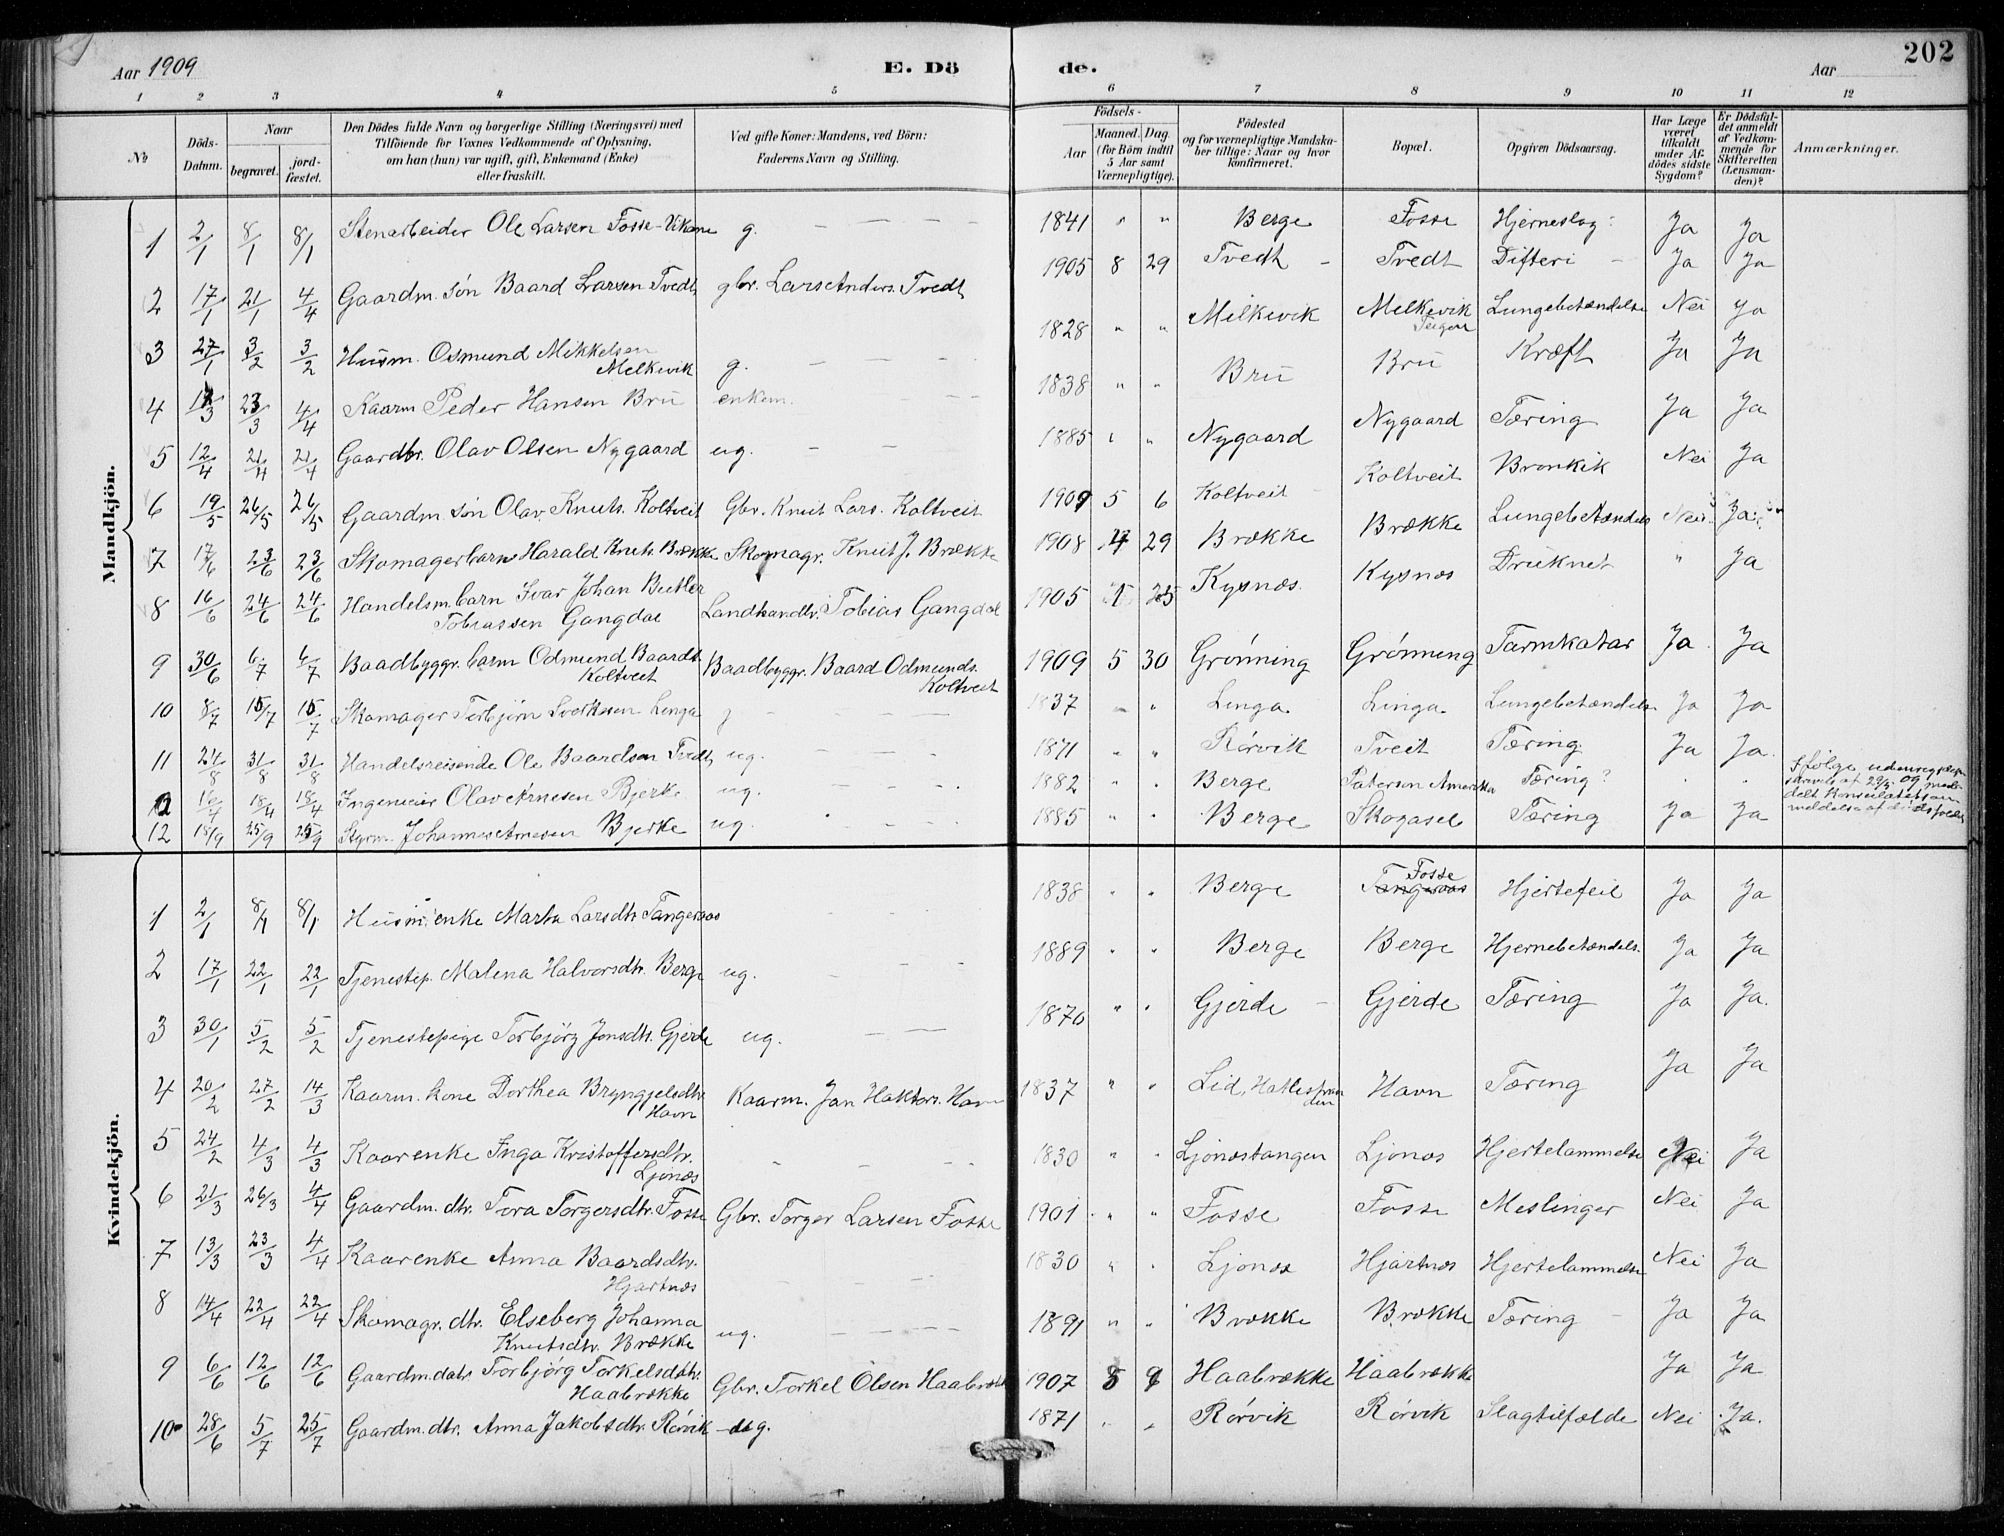 202
Aar 1909 E. Dö de. Aar
1 2 3 4 5 6 7 8 9 10 11 12
No
Döds-Datum.
Naar
begravet.
jord-fæstet.
Den Dödes fulde Navn og borgerlige Stilling (Næringsvei) med
Tilföiende for Voxnes Vedkommende af Oplysning,
om han (hun) var ugift, gift, Enkemand (Enke)
eller fraskilt.
Ved gifte Koner: Mandens, ved Börn:
Faderens Navn og Stilling.
Födsels-
Aar
Maaned. Dag.
(for Börn indtil
5 Aar samt
Værnepligtige).
Födested
og for værnepligtige Mandska-
ber tillige: Naar og hvor
konfirmeret.
Bopæl.
Opgiven Dödsaarsag.
Har Læge
været
tilkaldt
under Af-
dödes sidste
Sygdom?
Er Dödsfal-
det anmeldt
af Vedkom-
mende for
Skifteretten
(Lensman-
den)?
Anmærkninger.
Mandkjön.
1 2/1 8/1 8/1 Stenarbeider Ole Larsen Fosse-Vikane g. 1841 " " Berge Fosse Hjerneslag Ja Ja
2 17/1 21/1 4/4 Gaardm. søn Baard Larsen Tvedt gbr. Lars Anders. Tvedt 1905 8 29 Tvedt Tvedt Difteri Ja Ja
3 27/1 3/2 3/2 Husm. Osmund Mikkelsen Melkevik g. 1828 " " Milkevik Melkevik Teigen Lungebetændelse Nei Ja
4 /3 23/3 4/4 Kaarm Peder Hansen Bru enkem. 1838 " " Bru Bru Kræft Ja Ja
5 12/4 21/4 21/4 Gaardbr. Olav Olsen Nygaard ug. 1885 " " Nygaard Nygaard Tæring Ja Ja
6 19/5 26/5 26/5 Gaardm. søn Olav Knuts. Koltveit Gbr. Knut Lars. Koltveit 1909 5 6 Koltveit Koltveit Bronkik Nei Ja
7 17/6 23/6 23/6 Skomagerbarn Harald Knuts. Brække Skomagr. Knut J. Brække 1908 4 29 Brække Brække Lungebetændels Nei Ja
8 16/6 24/6 24/6 Handelsm. barn Ivar Johan Butler Tobiassen Gangdal Landhandlr. Tobias Gangdal 1905 1 25 Kysnæs Kysnæs Druknet " Ja
9 30/6 6/7 6/7 Baadbyggr. barn Odmund Baards. Koltveit Baadbyggr. Baard Odmunds. Koltveit 1909 5 30 Grønning Grønneng Tarmkatar Ja Ja
10 8/7 15/7 15/7 Skomager Torbjørn Sverkesen Linga g 1837 " " Linga Linga Lungebetændels Ja Ja
11 24/8 31/8 31/8 Handelsreisende Ole Baardsen Tvedt ug. 1871 " " Rørvik Tveit Tæring Ja Ja
16/4 18/4 18/4 Ingeniør Olav Arnesen Bjerke ug. 1882 " " Berge Paterson Amerika Tæring? Ifølge
12 18/9 25/9 25/9 Styrm. Johannes Arnesen Bjerke ug. 1885 " " Berge Skogasel Tæring Ja Ja
Kvindekjön.
1 2/1 8/1 8/1 Husm. enke Marta Larsdtr. Tangeraas 1838 " " Berge Tangeraas Fosse Hjertefeil Ja Ja
2 17/1 22/1 22/1 Tjenestep. Malena Halvorsdtr. Berge ug. 1889 " " Berge Berge Hjernebetændels. Ja Ja
3 30/1 5/2 5/2 Tjenestepige Torbjörg Jonsdtr. Gjerde ug. 1870 " " Gjerde Gjerde Tæring Ja Ja.
4 20/2 27/2 14/3 Kaarm. kone Dorthea Bryngjelsdtr. Havn Kaarm. Jan Haktors. Havn 1837 " " Lid, Havn Tæring Ja Ja
5 24/2 4/3 4/3 Kaarenke Inga Kristoffersdtr. Ljonæs 1830 " " Ljonæstangen Ljonæs Hjertelammelse Nei Ja
6 21/3 26/3 4/4 Gaardm. dtr. Tora Torgersdtr. Fosse Gbr. Torger Larsen Fosse 1901 " " Fosse Fosse Meslinger Nei Ja
7 13/3 23/3 4/4 Kaarenke Anna Baardsdtr. Hjartnæs 1830 " " Ljonæs Hjartnæs Hjertelammelse Nei Ja
8 14/4 22/4 22/4 Skomagr. dtr. Elseberg Johanna Knutsdtr. Brække ug. 1891 " " Brække Brække Tæring Ja Ja
9 6/6 12/6 12/6 Gaardm. datr. Torbjörg Torkelsdtr. Haabrække Gbr. Torkel Olsen Haabrække 1907 8 9 Haabrække Haabrække Ja Ja
10 28/6 5/7 25/7 Gaardm. dtr. Anna Jakobsdtr. Rørvik ug. 1871 " " Rørvik Rørvik Slagtilfælde Nei Ja.